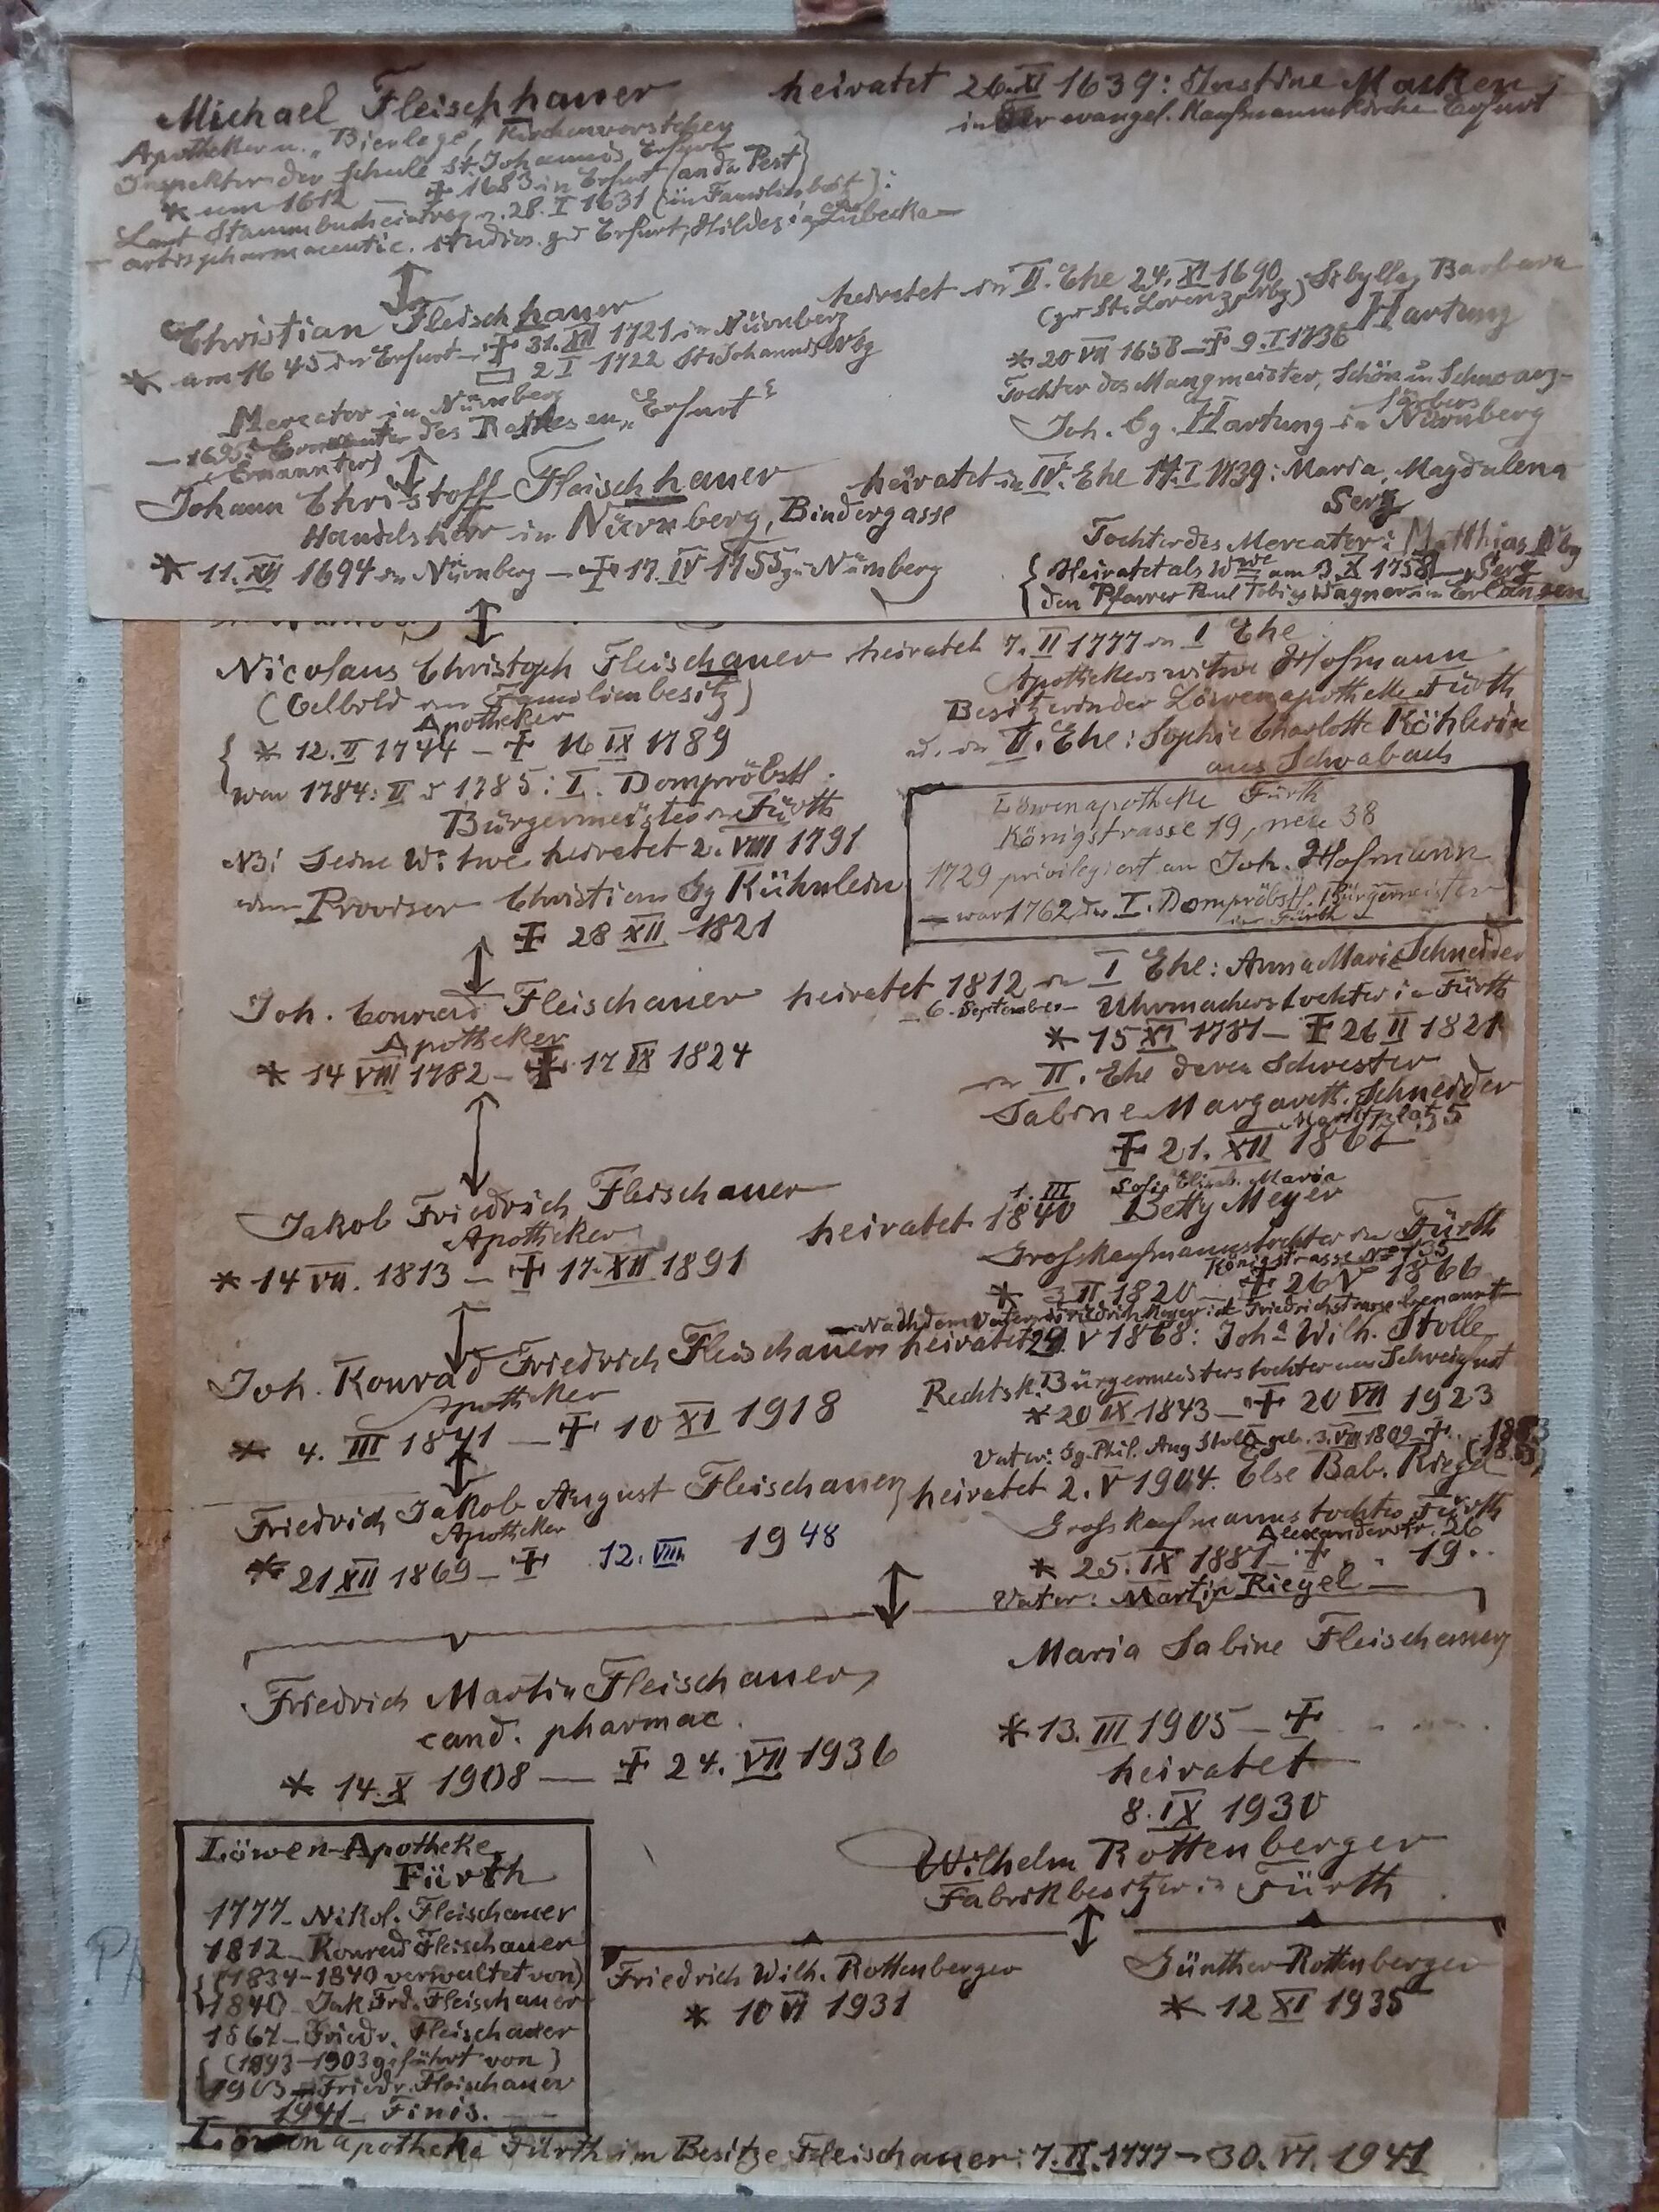 Michael Fleischhauer heiratet 26. XI 1639: Justine Macken,
in der evangel. Kaufmannskirche Erfurt
Apotheker u. „Bierlege", Kirchenvorsteher
Inspektor der Schule St. Johannis Erfurt
* um 1612 — ✝ 1683 in Erfurt (an da Pest)
Laut Stammbucheintrag v. 28. I 1631 (in Familienbesitz):
artis pharmaceutic. studios. zu Erfurt, Hildes in Lübecka
Christian Fleischhauer
* am 1645 in Erfurt — ✝ 31. XII 1721 in Nürnberg
2 I 1722 St. Johannis Nbg
Mercator in Nürnberg
— des Rathes en „Erfurt"
(Ernannter)
heiratet in II. Ehe 24. XI 1690 Sibylla, Barbara
(zu St. Lorenz, Nbg) Hartung
* 20 VII 1658 — ✝ 9. I 1736
Tochter des Mangmeister, Schön u Schwarz-
färbers
Joh. Gg. Hartung in Nürnberg
Johann Christoff Fleischhauer heiratet in IV. Ehe 17. I 1739: Maria, Magdalena
Serz
Handelsherr in Nürnberg, Bindergasse
* 11. XII 1694 in Nürnberg — ✝ 17. IV 1755 zu Nürnberg
Tochter des Mercator: Matthias Nbg
Serz
{ Heiratet als Wwe am 3. X 1758
den Pfarrer Paul Tobias Wagner in Erlangen
Nicolaus Christoph Fleischauer heiratet 7. II 1777 in I Ehe:
(Oelbild im Familienbesitz)
Apotheker
{ * 12. II 1744 — ✝ 16 IX 1789
war 1784: II u 1785: I. Dompröbstl.
Bürgermeister in Fürth
Apothekerswitwe Hofmann
Besitzerin der Löwenapotheke Fürth
u. in II. Ehe: Sophie Charlotte Köhlerin
aus Schwabach
NB! Seine Witwe heiratet 2. VIII 1791
den Provisor Christian Gg Kühnlein
✝ 28 XII 1821
Löwenapotheke Fürth
Königstrasse 19, neu 38
1729 privilegiert an Joh. Hofmann
— war 1762 der I. Dompröbstl. Bürgermeister
in Fürth —
Joh. Conrad Fleischauer heiratet 1812 in I Ehe: Anna Marie Schneider
6. September — Uhrmacherstochter in Fürth
Apotheker
* 14 VIII 1782 — ✝ 17 IX 1824
* 15 XI 1781 — ✝ 26 II 1821
in II. Ehe deren Schwester
Sabine Margareth. Schneider
Marktplatz 5
✝ 21. XII 1862
Jakob Friedrich Fleischauer
Apotheker
* 14 VII. 1813 — ✝ 17. XII 1891
heiratet 1. III 1840 Sofie Elisab. Maria
Betty Meyer
Grosskaufmannstochter in Fürth
Königstrasse No 135
* 3 II 1820 — ✝ 26 V 1866
— Nach dem Vater Friedrich Meyer ist Friedrichstrasse benannt —
Joh. Konrad Friedrich Fleischauer heiratet 29. V 1868: Joha Wilh. Stolle
Apotheker
* 4. III 1841 — ✝ 10 XI 1918
Rechtsk. Bürgermeisterstochter aus Schweinfurt
* 20 IX 1843 — ✝ 20 VII 1923
Vater: Gg. Phil. Aug Stolle geb. 3. VII 1809 — ✝ . .
Friedrich Jakob August Fleischauer, heiratet 2. V 1904. Else Bab. Riegel
Apotheker
* 21 XII 1869 — ✝ 12. VIII 1948
Grosskaufmannstochter, Fürth
Alexanderstr. 26
* 25. IX 1881 — ✝ . . 19..
Vater: Martin Riegel —
Friedrich Martin Fleischauer,
cand. pharmac.
* 14. X 1908 — ✝ 24. VII 1936
Maria Sabine Fleischauer
* 13. III 1905 — ✝ . . . .
heiratet
8. IX 1930
Wilhelm Rottenberger
Fabrikbesitzer in Fürth
Friedrich Wilh. Rottenberger
* 10 VI 1931
Günther Rottenberger
* 12 XI 1935
Löwen-Apotheke
Fürth
1777 — Nikol. Fleischauer
1812 — Konrad Fleischauer
{ (1834 - 1840 verwaltet von)
1840 — Jak Frd. Fleischauer
1867 — Friedr. Fleischauer
{ (1893 - 1903 geführt von)
1903 — Friedr. Fleischauer
1941 — Finis.
Löwenapotheke Fürth im Besitze Fleischauer: 7. II. 1777 — 30. VI. 1941